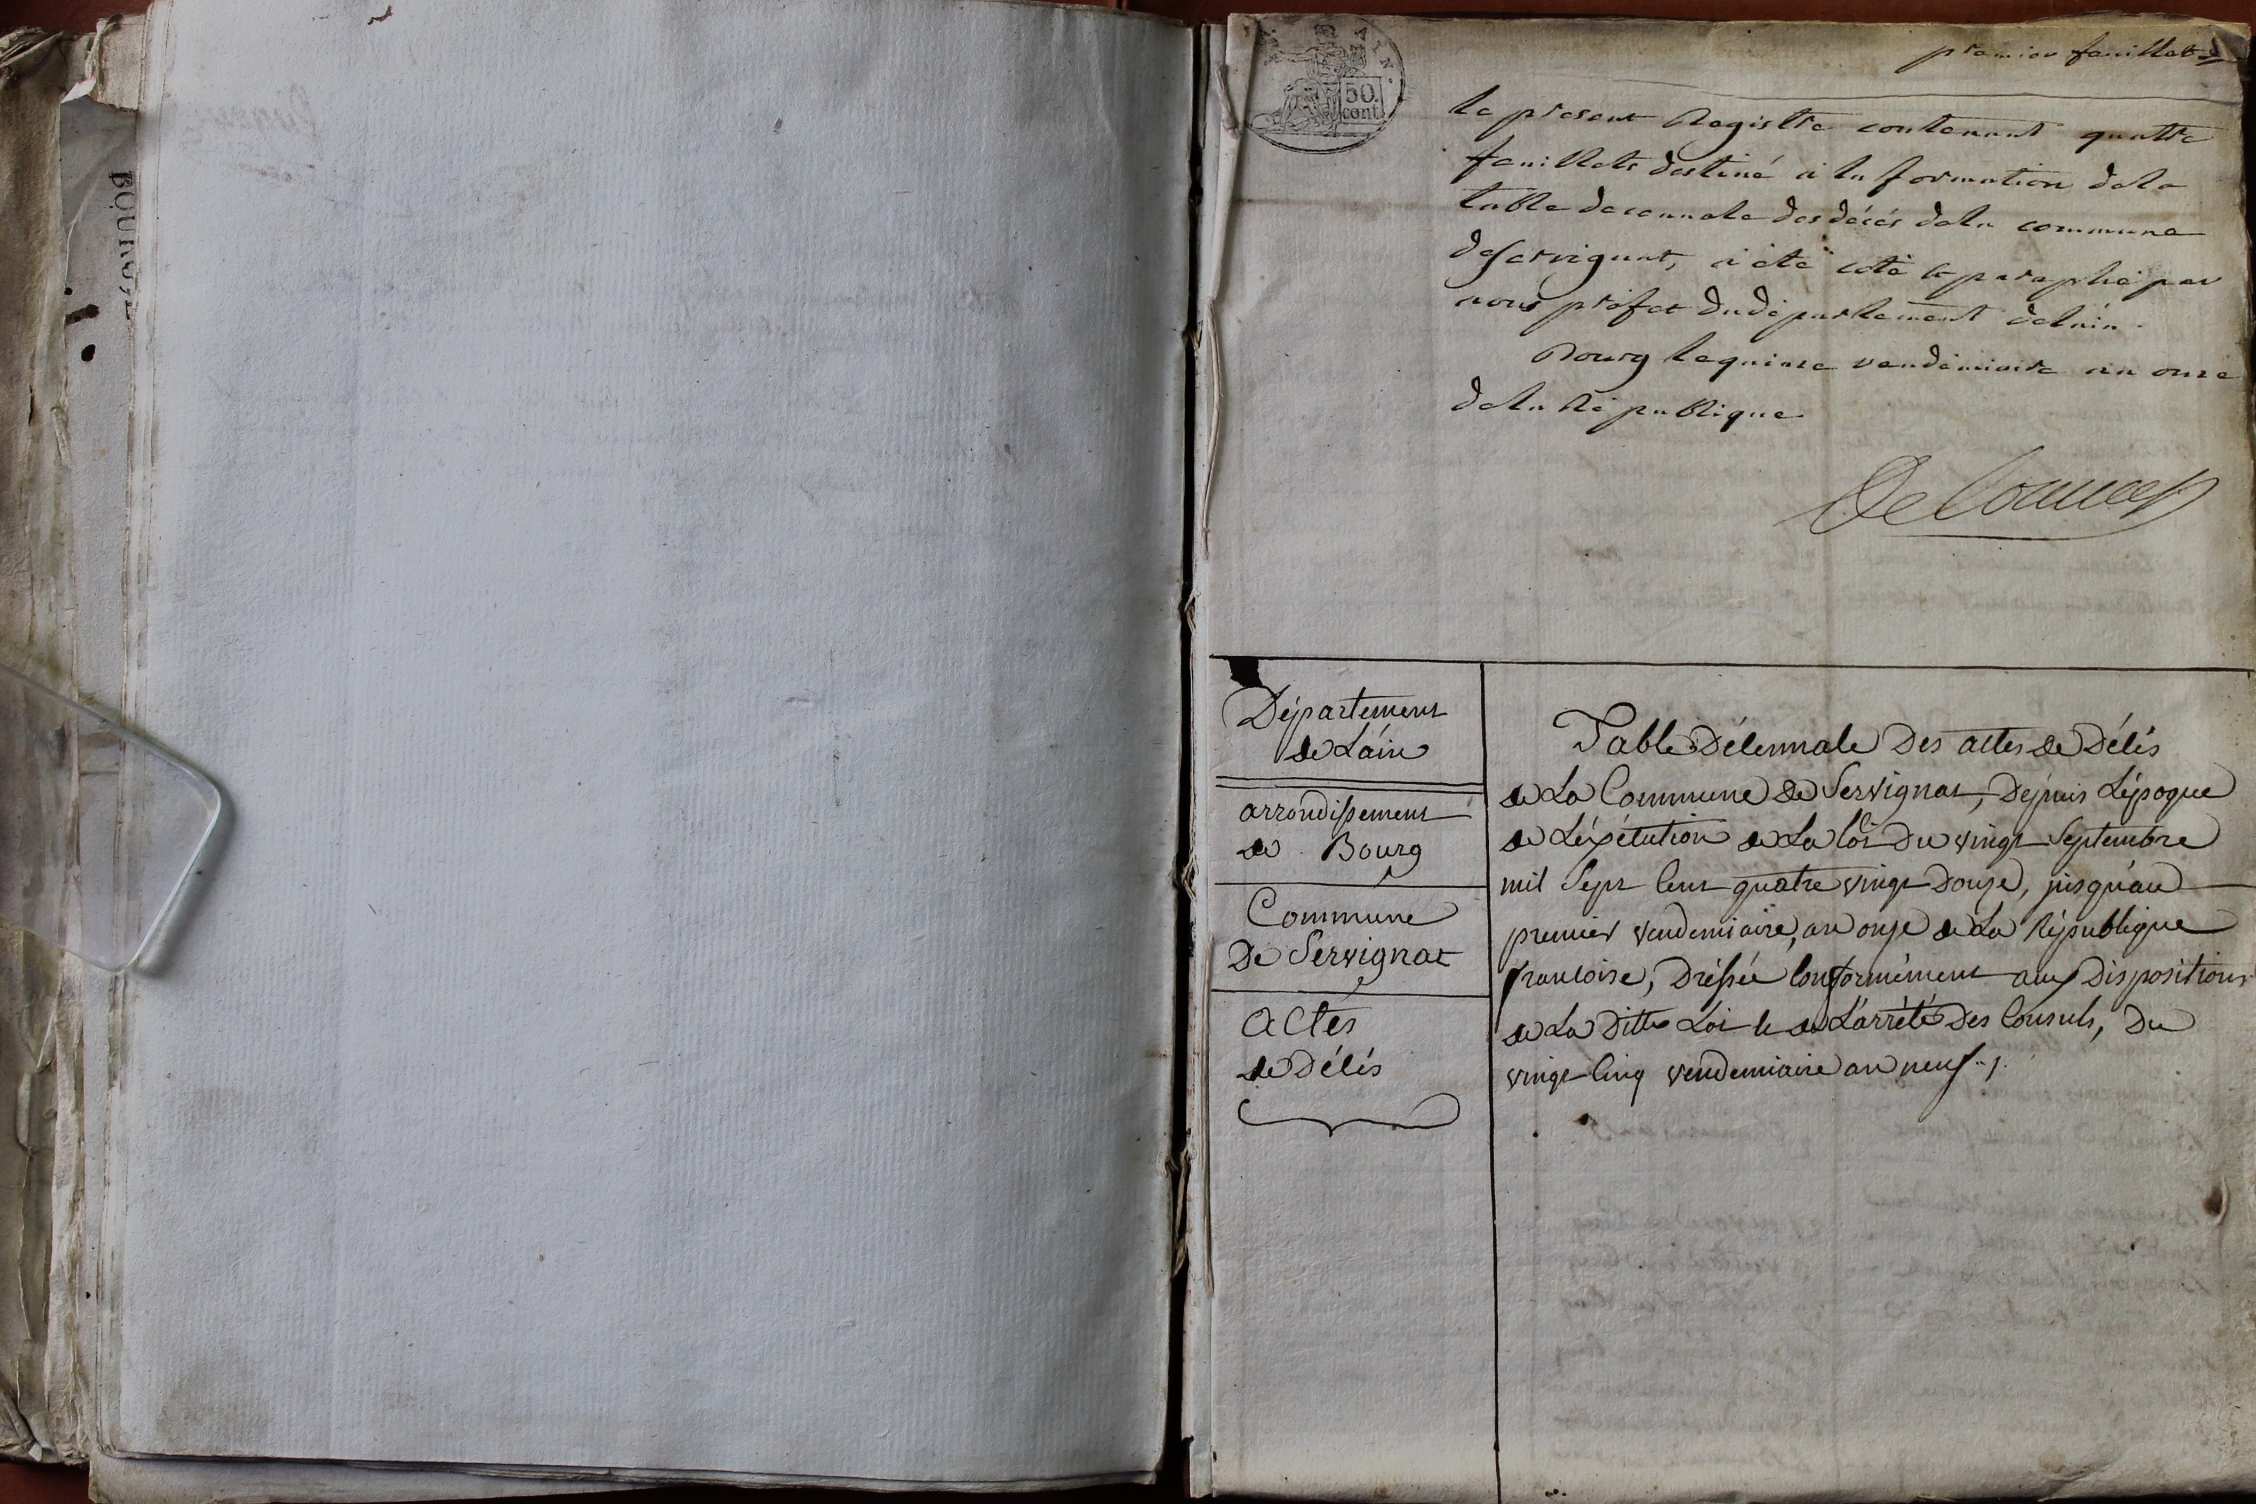 BOURG
AIN.
50.
cent.
premier feuillet
le present Registre contenant quatre
feuillets destiné a la formation de la
table decennale des décés de la commune
de Servignat, a été coté et paraphé par
nous préfet du département de l'ain.
Bourg le quinze vendemiaire an onze
de la République
Département
de L'áin
arrondissement
de Bourg
Commune
De Servignat
Actes
de Décés
Table Décennale Des actes de Décés
de La Commune de Servignat, Depuis L'époque
de L'éxécution de La loi Du vingt Septembre
mil Sept Cent quatre vingt Douze, jusqu'au
premier vendemiaire, an onze de La République
francoise, Dréssée Conformément aux Dispositions
de La Ditte Loi et de L'arrété Des Consuls, Du
vingt Cinq vendemiaire an neuf ./.